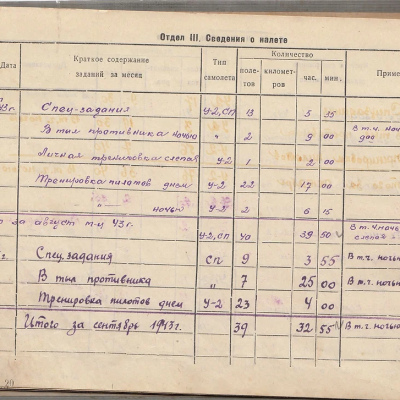 Отдел III. Сведения о налете
Дата Краткое содержание заданий за месяц Тип самолета Количество Приме
поле-тов километ-ров час. мин.
43г. Спец-задания У-2, СП 13 5 35
В тыл противника ночью " 2 9 00 В т.ч. ноч
Личная тренировка слепая У-2 1 2 00
Тренировка пилотов днем У-2 22 17 00
—"— ночью У-2 2 6 15
за август м-ц 43г. У-2, СП 40 39 50 В т.ч. ночью
г. Спец.задания СП 9 3 55 В т.ч. ночью
В тыл противника " 7 25 00 В т.ч. ночью
Тренировка пилотов днем У-2 23 4 00
Итого за сентябрь 1943г. 39 32 55 В т.ч. ночью
20